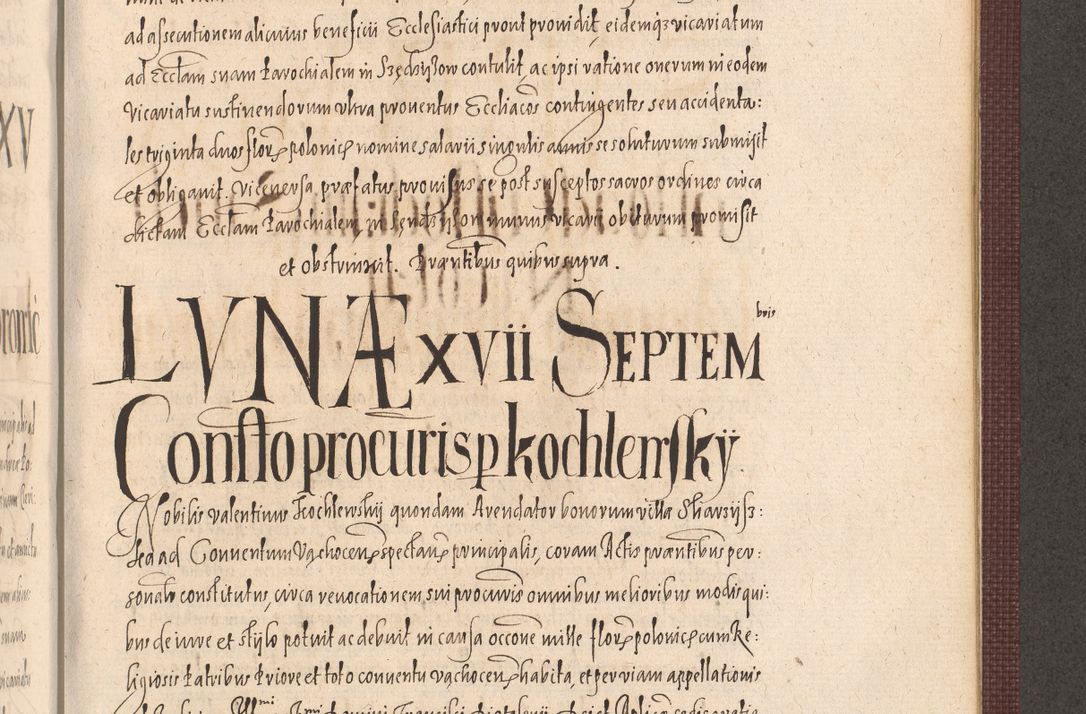 ad assecutionem alicuius beneficii Ecclesiastici prout providit, eidemq3 vicariatum
ad Eccłam suam Parochialem in Szędzyszow contulit, ac ipsi ratione onerum in eodem
vicariatu sustinendorum ultra proventus Eccliacos contingentes seu accidenta:
les triginta duos flor polonic nomine salarii singulis annis se soluturum submisit
et obligavit. Viceversa præfatus provisus se post susceptos sacros ordines circa
dictam Eccłam Parochialem in Sendzyszow munus vicarii obiturum promisit
et obstrinxit. Præntibus quibus supra.
LVNÆ XVII SEPTEM bris
Consto procuris p kochlewsky
Nobilis Valentinus Kochlewskij quondam Arendator bonorum villa Skarzijs3:
ka ad Conventum Vąchocen spectan principalis, coram Actis præntibus per:
sonalr constitutus, circa revocationem sui procuris omnibus melioribus modis qui:
bus de iure et stylo potuit ac debuit in causa occone mille flor polonic cum Re:
ligiosis Patribus Priore et toto conventu vąchocen habita, et per viam appellationis